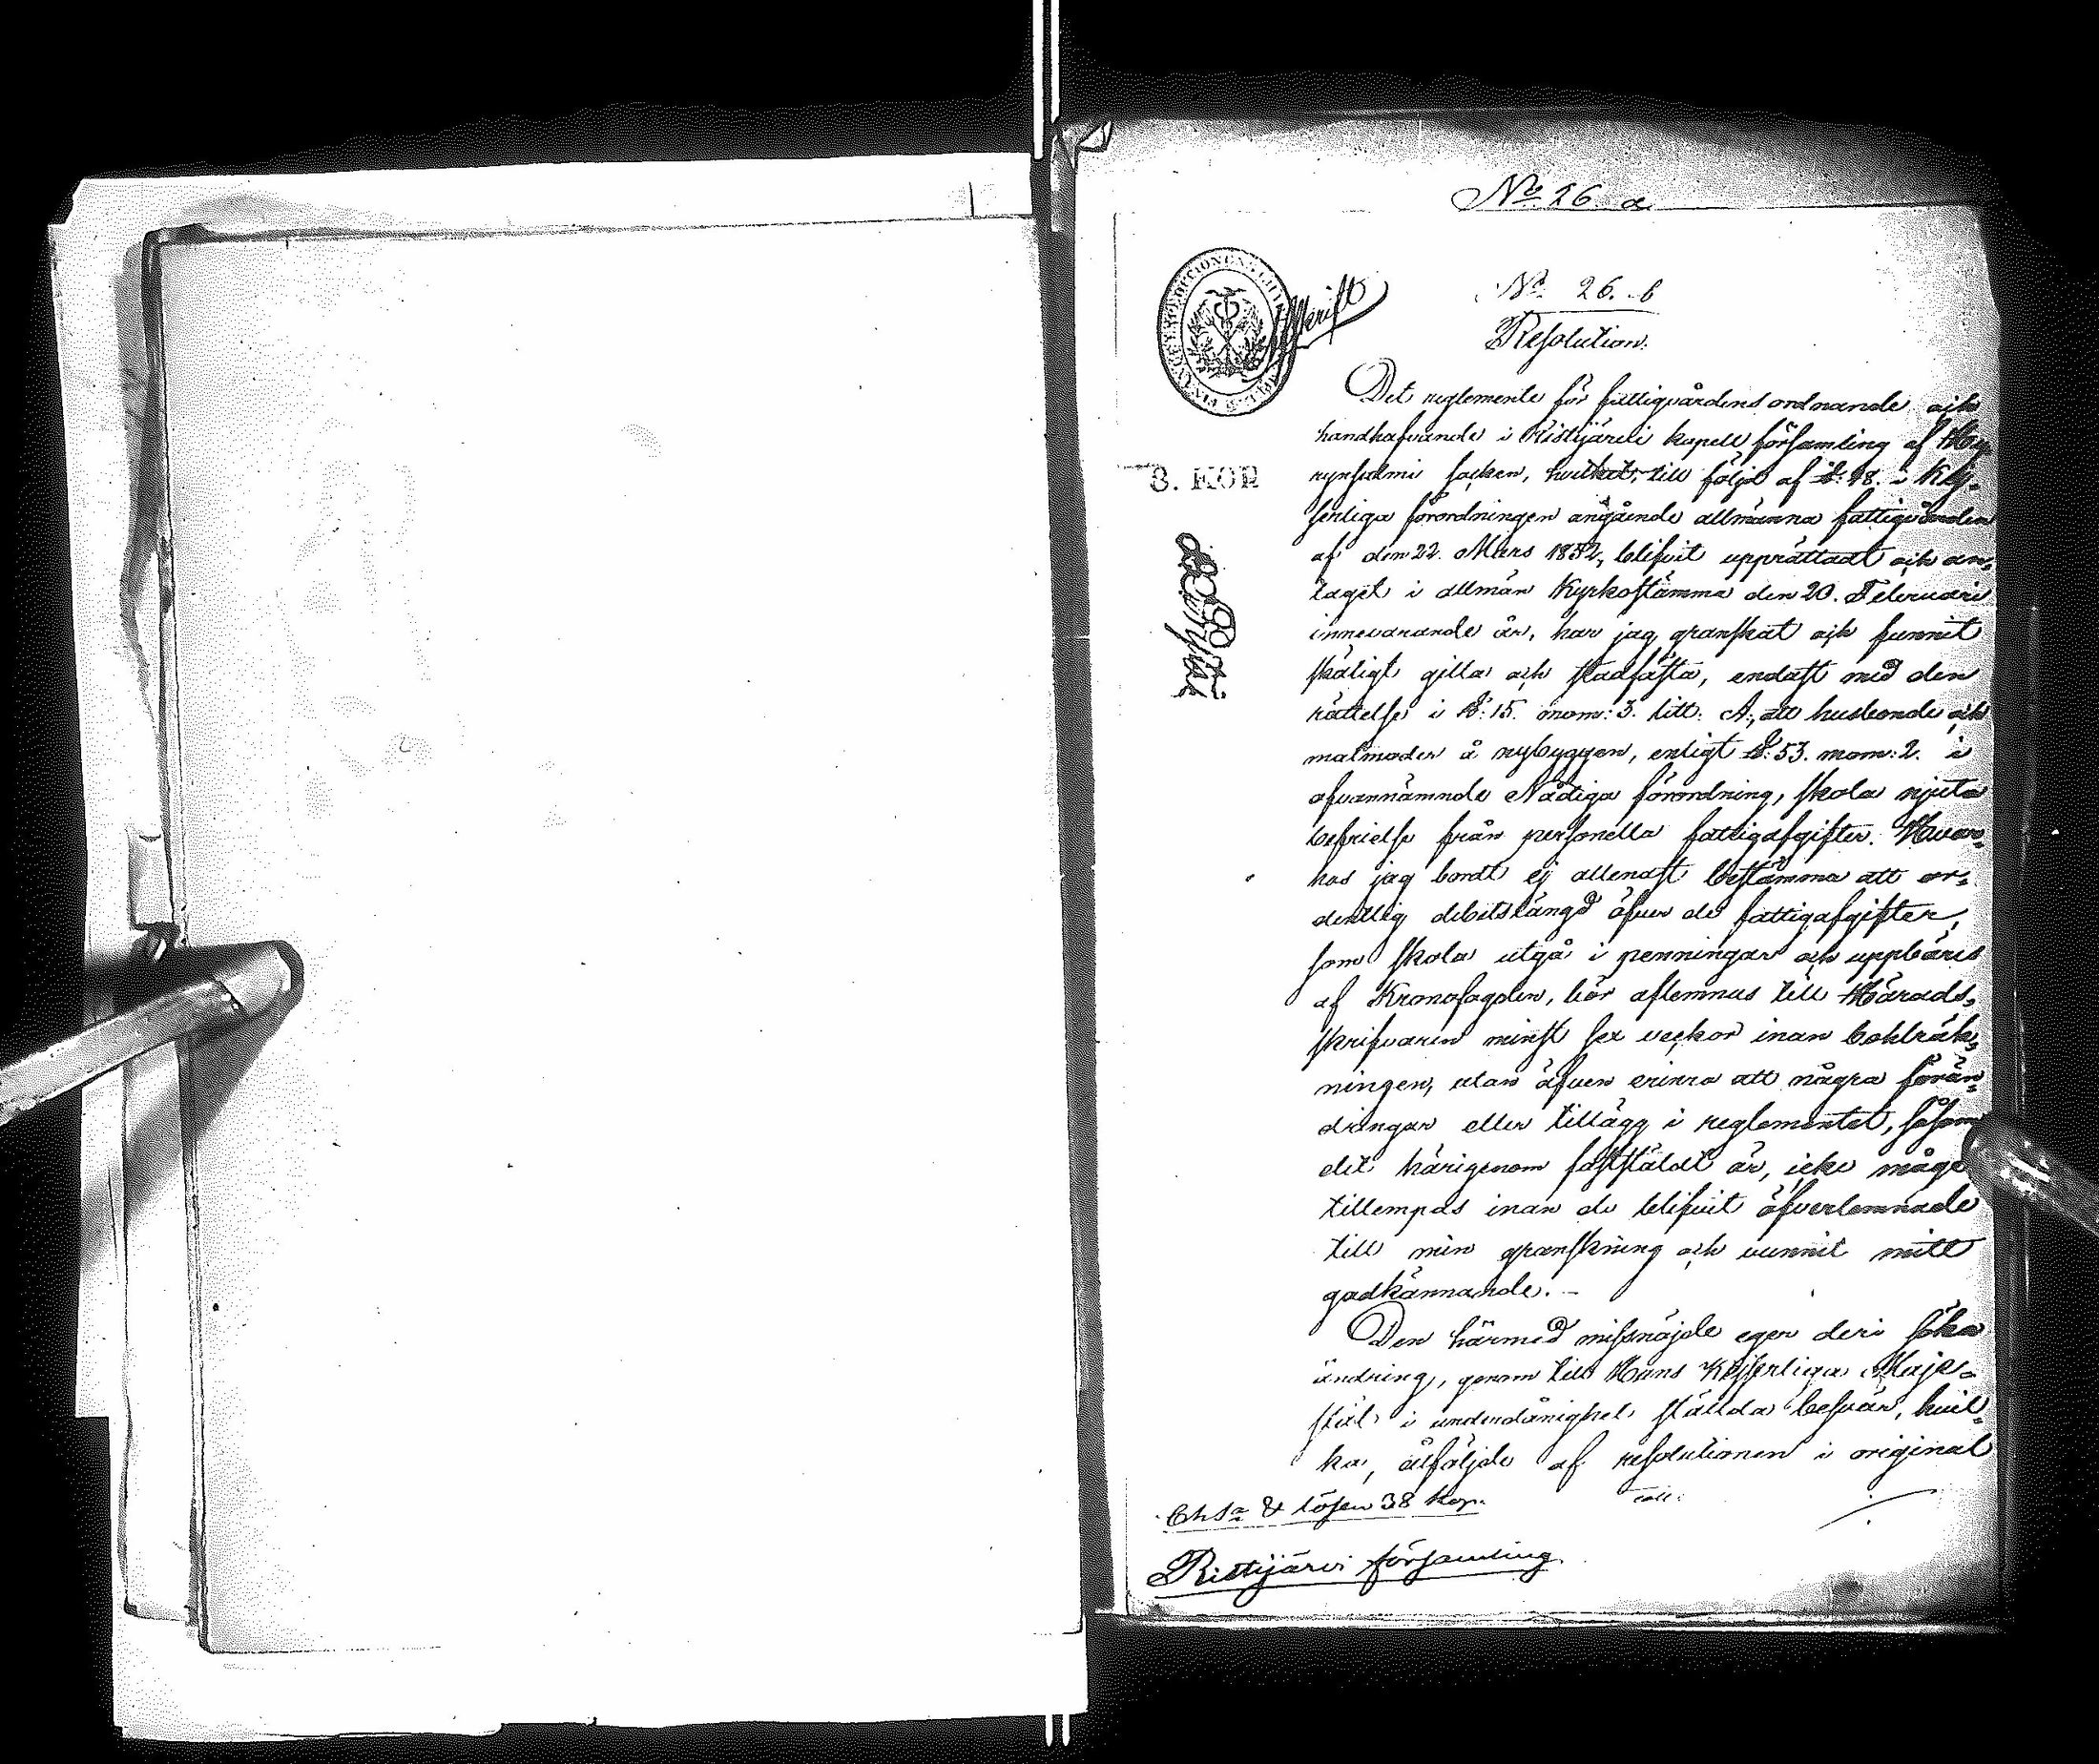 No 26 a
No 26. b
Afskrift
Resolution.
3. KOP
Det reglemente för fattigvårdens ordnande och
handhafvande i Ristijärvi kapell församling af Hy
rynsalmi socken, hvilket, till följd af §: 48. i Kej-
serliga förordningen angående allmänna fattigvården
af den 22. Mars 1852, blifvit upprättadt och an-
taget i allmän Kyrkostämma den 20. Februari
innevarande år, har jag granskat och funnit
skäligt gilla och stadfästa, endast med den
rättelse i §: 15. mom: 3. litt: A, att husbonde och
matmoder å nybyggen, enligt §: 53. mom: 2. i
ofvannämnde Nådiga förordning, skola njuta
befrielse från personella fattigafgifter. Hvar-
hos jag bordt ej allenast bestämma att or-
dentlig debitslängd öfver de fattigafgifter,
som skola utgå i penningar och uppbäras
af Kronofogden, bör aflemnas till Härads-
skrifvaren minst sex veckor innan bokräk-
ningen, utan äfven erinra att några förän-
dringar eller tillägg i reglementet, såsom
det härigenom faststäldt är, icke måge
tillempas inan de blifvit öfverlemnade
till min granskning och vunnit mitt
godkännande. -
Den härmed missnöjde eger deri söka
ändring, genom till Hans Kejserliga Maje-
stät i underdånighet ställda besvär, hvil-
ka, åtföljde af resolutionen i original
Chs:a & lösen 38 kop.
coll:
Ristijärvi församling.